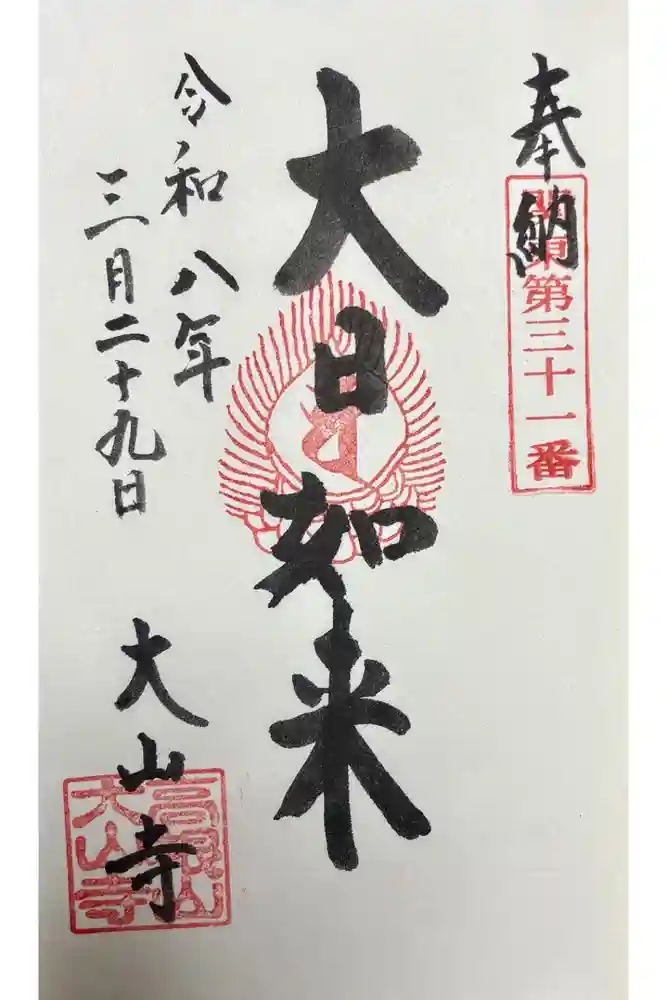 奉納
関東第三十一番
大日如来
令和八年
三月二十九日
大山寺
大山寺